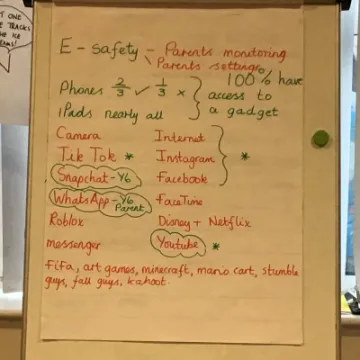 T ONE
TRACKS
E - safety - Parents monitoring
Parents settings
Phones 2/3 ✓ 1/3 × } 100% have
access to
iPads nearly all a gadget
Camera Internet
Tik Tok * Instagram *
Snapchat - Y6 Facebook
WhatsApp - Y6 Parent FaceTime
Roblox Disney + Netflix
messenger Youtube *
Fifa, art games, minecraft, mario cart, stumble
guys, fall guys, kahoot.